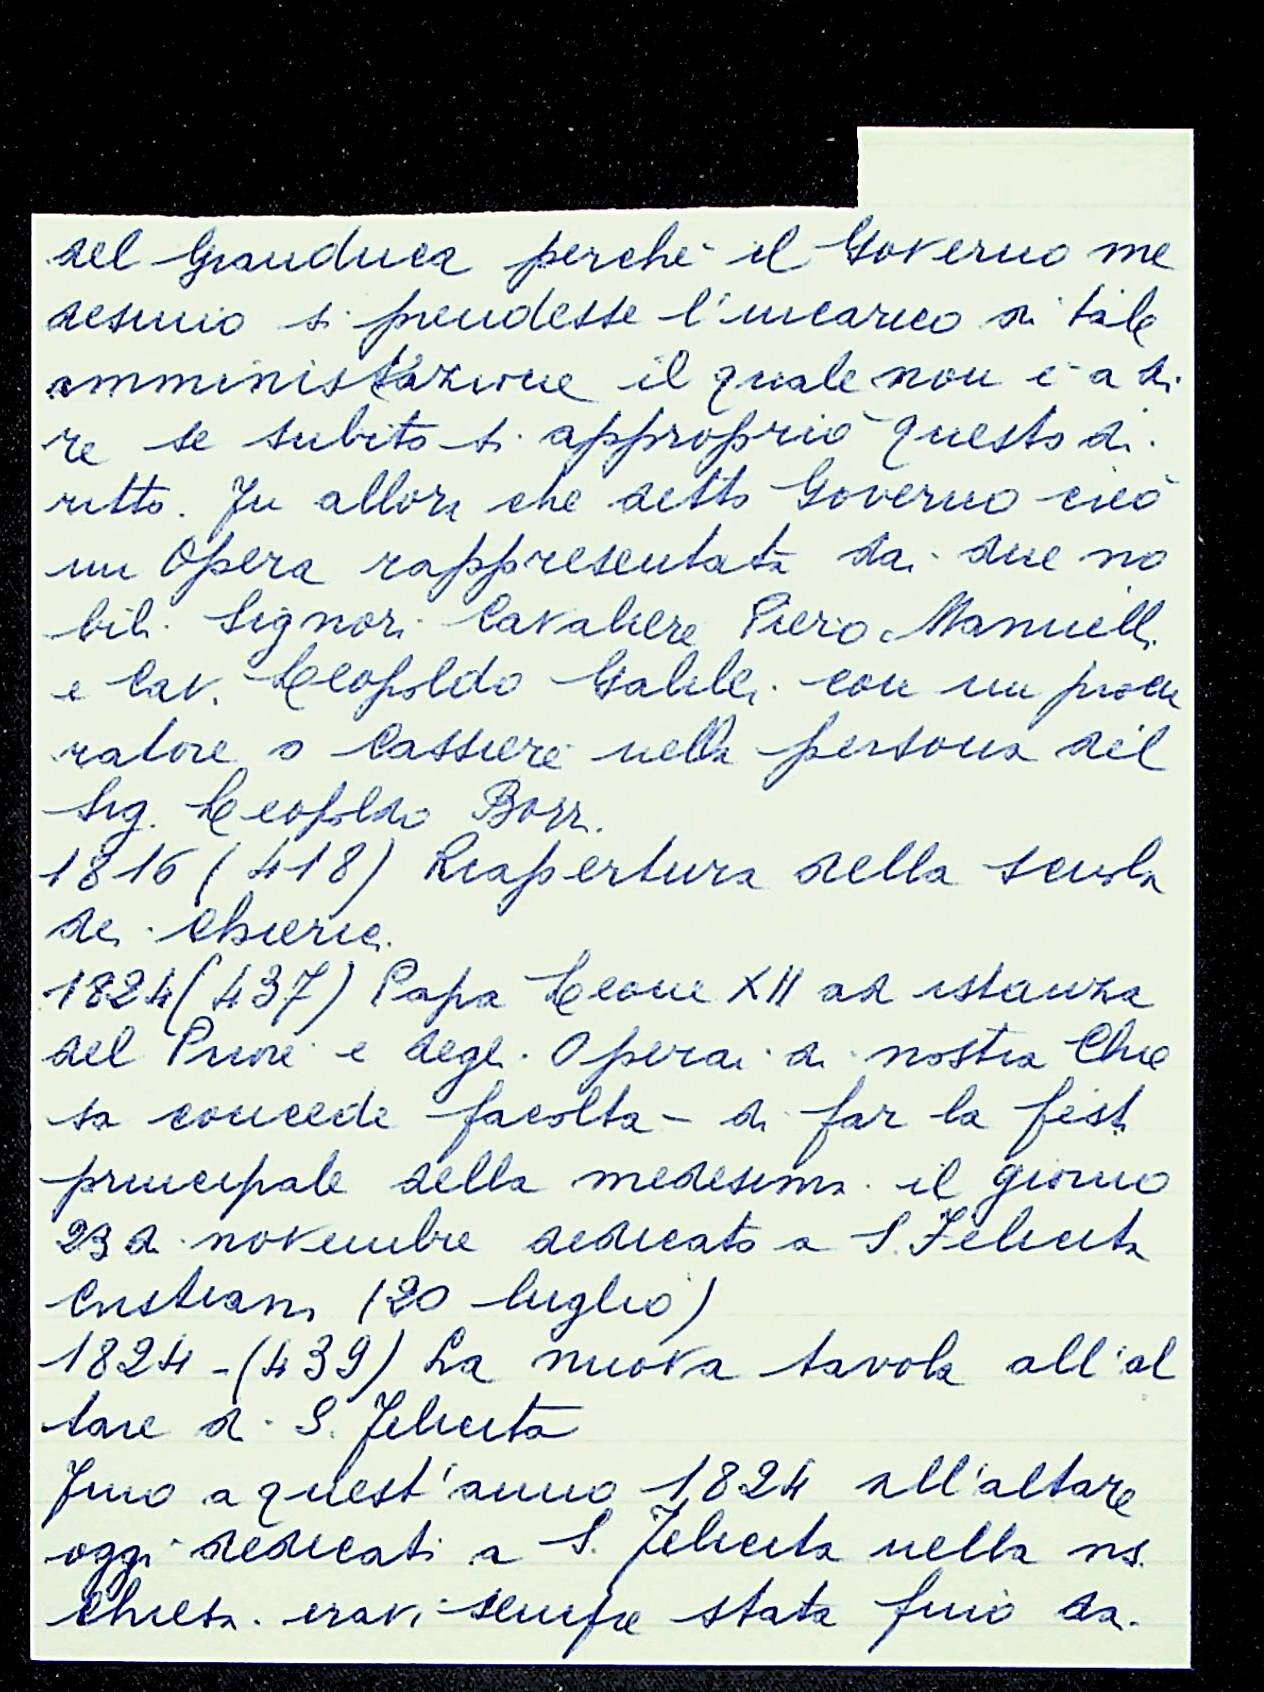 del Granduca perchè il Governo me
desimo si prendesse l'incarico di tale
amministrazione il quale non è a di
re se subito si appropriò questo di
ritto. Fu allora che detto Governo creò
un Opera rappresentata dai due no
bili Signori Cavaliere Piero Mannelli
e Cav. Leopoldo Galilei con un procu
ratore o Cassiere nella persona del
Sig. Leopoldo Borri.
1816 (418) Riapertura della scuola
dei Chierici.
1824 (437) Papa Leone XII ad istanza
del Priore e degli Operai di nostra Chie
sa concede facoltà di far la festa
principale della medesima il giorno
23 di novembre dedicato a S. Felicita
Cristiana (20 luglio)
1824 - (439) La nuova tavola all'al
tare di S. Felicita
Fino a quest'anno 1824 all'altare
oggi dedicati a S. Felicita nella ns.
Chiesa eravi sempre stata fino da